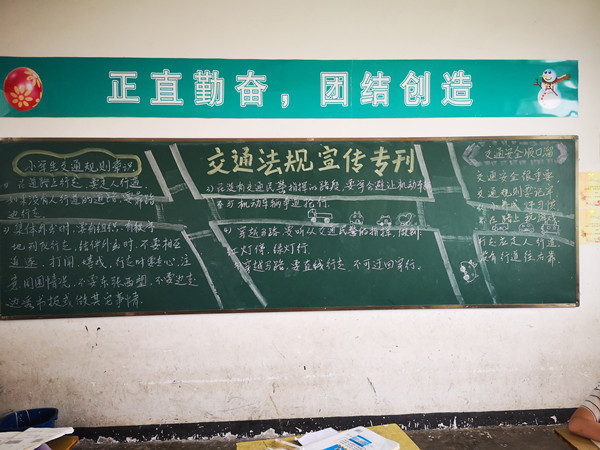 正直勤奋，团结创造
小学生交通规则常识
1) 在道路上行走，要走人行道，
没有人行道的道路，要靠路
边行走。
2) 集体外出时，要有组织、有秩序
地列队行走；结伴外出时，不要相互
追逐、打闹、嬉戏；行走时要专心，注
意周围情况，不要东张西望、不要边走
边看书报或做其它事情。
交通法规宣传专刊
3) 在没有交通民警指挥的路段，要学会避让机动车辆
不与机动车辆争道抢行。
4) 穿越马路，要听从交通民警的指挥，做到
红灯停，绿灯行。
穿越马路，要直线行走，不可迂回穿行。
交通安全顺口溜
交通安全很重要，
交通规则要记牢，
行走应走人行道
没有行道往右靠